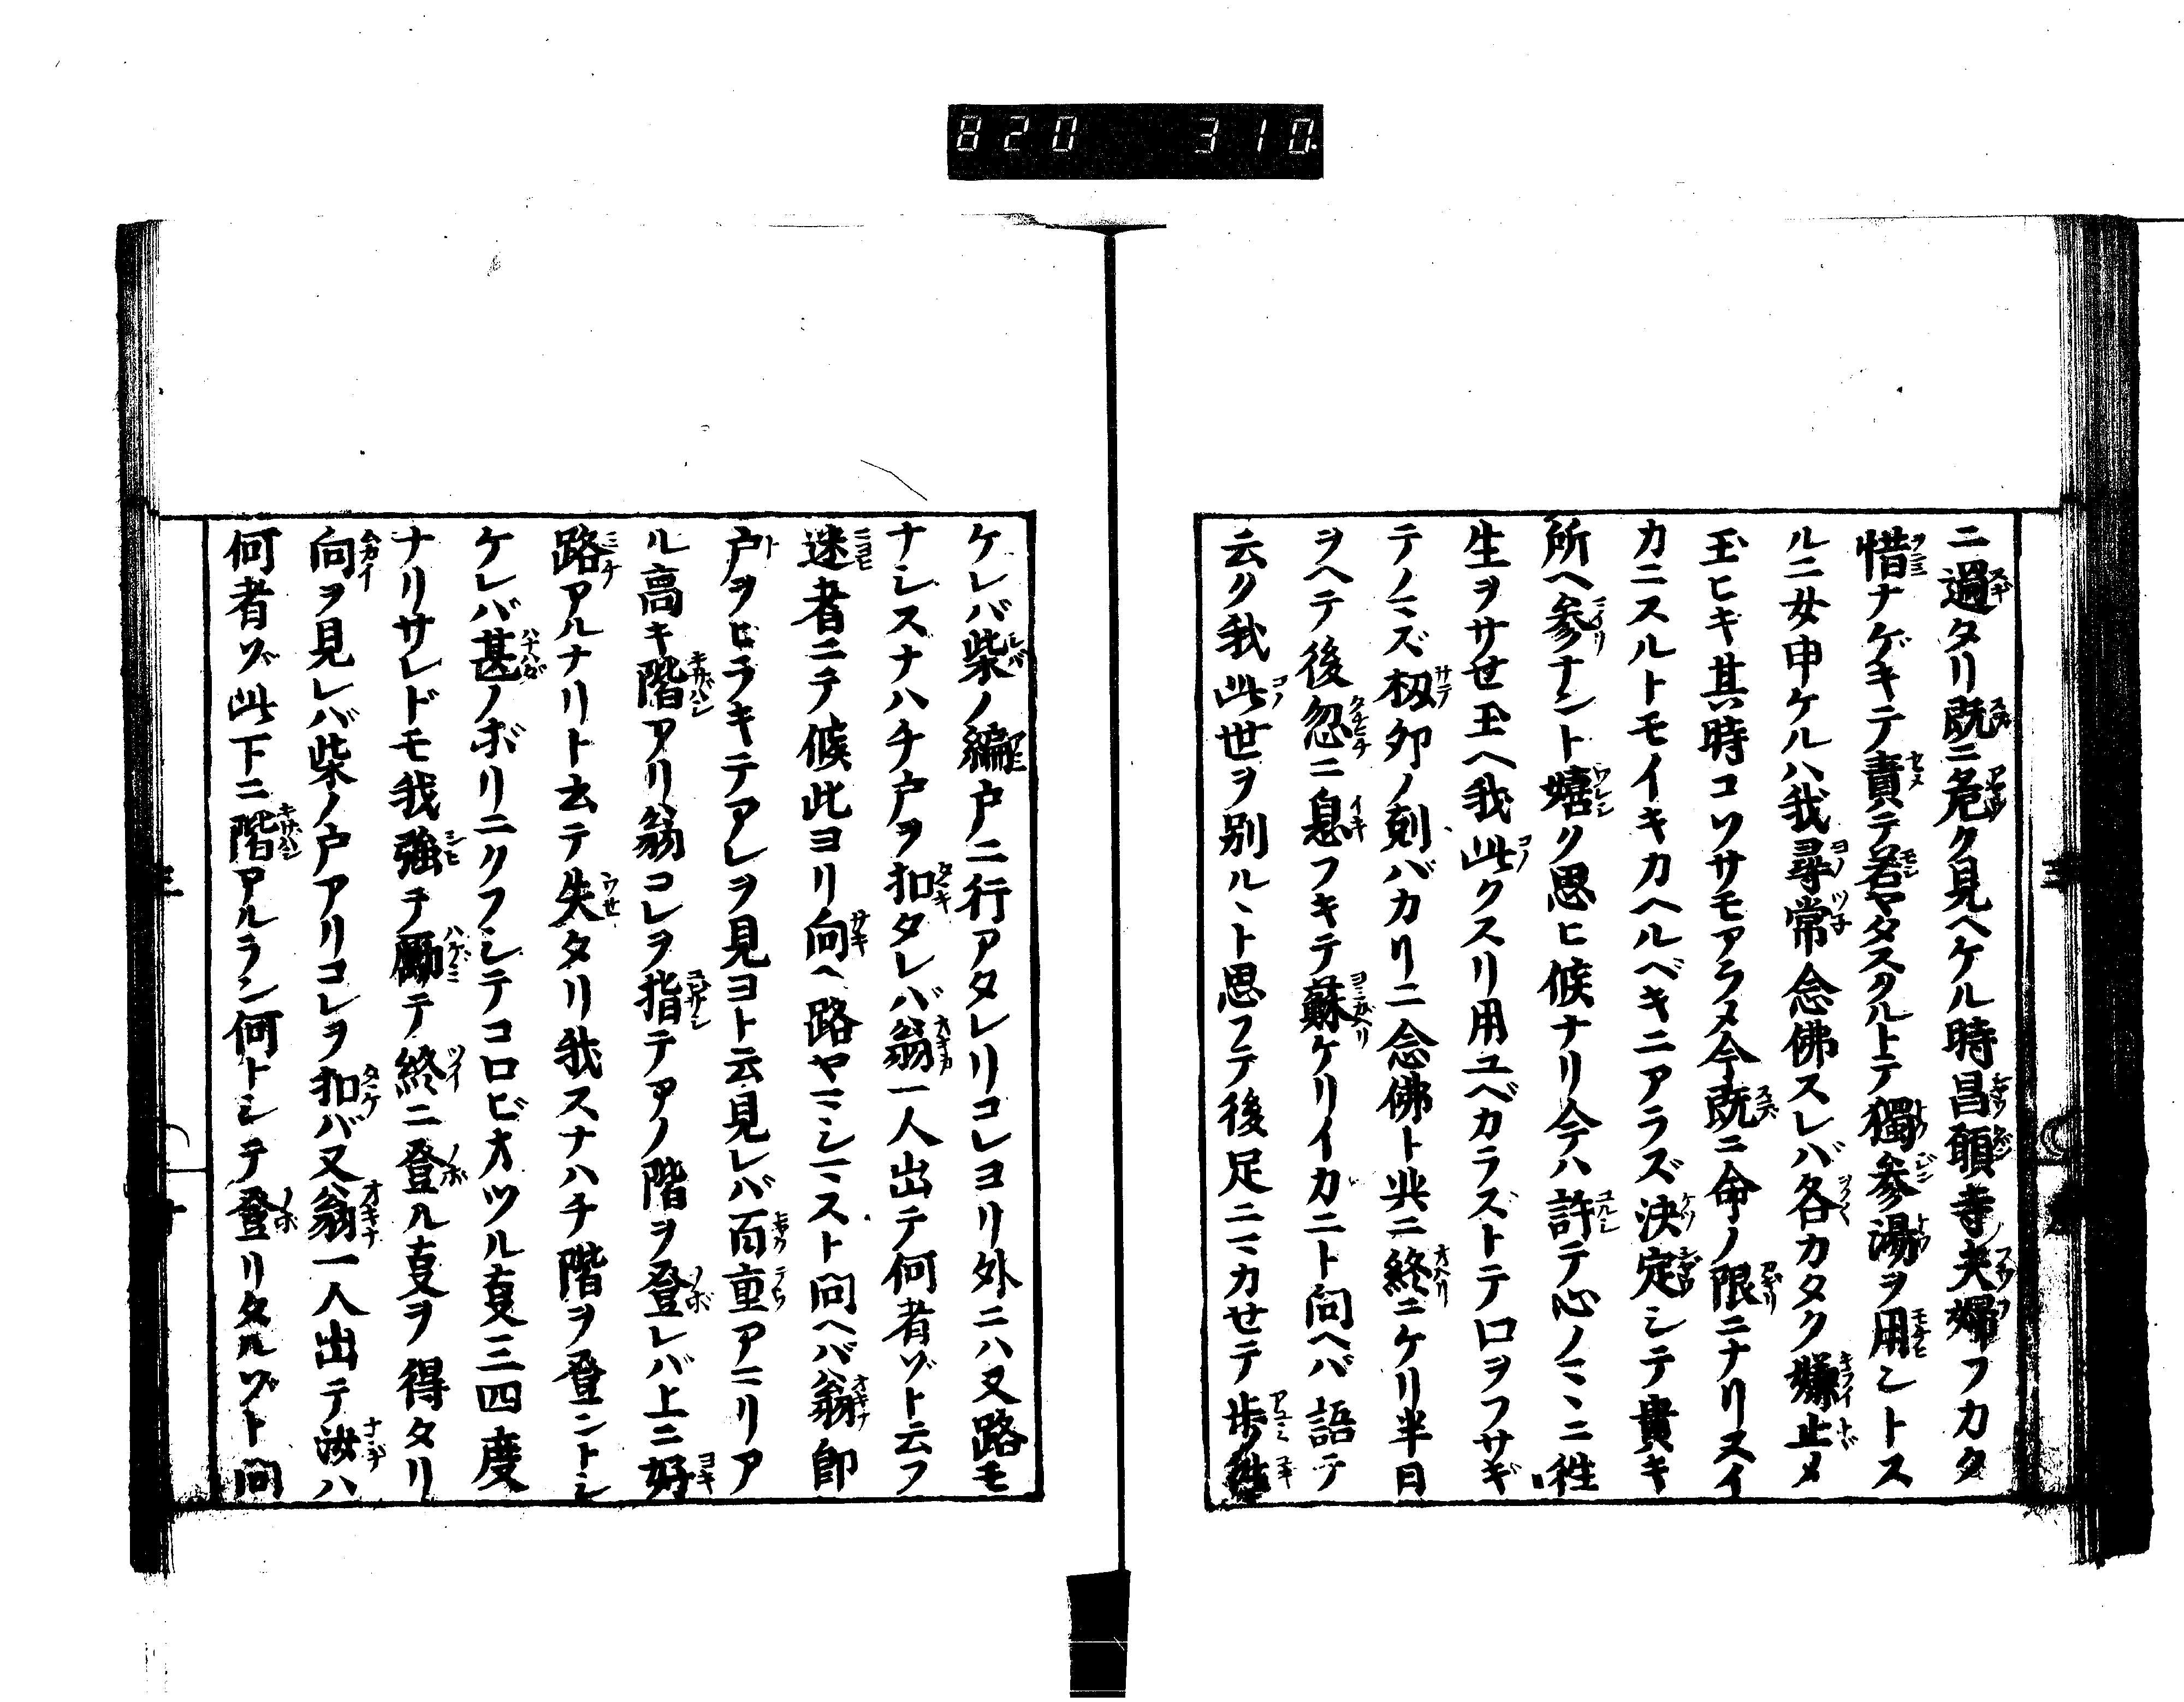 820 310
ニ過タリ既ニ危ク見ヘケル時昌願寺夫婦フカタ
惜ナゲキテ責テ若ヤタスクルトテ獨参湯ヲ用シトス
ルニ女申ケルハ我尋常念佛スレバ各カタク嫌止メ
玉ヒキ其時コソサモアラメ今既ニ命ノ限ニナリスイ
カニスルトモイキカヘルベキニアラズ決定シテ貴キ
所ヘ参ナント嬉ク思ヒ候ナリ今ハ許テ心ノマヽニ徃
生ヲサせ玉ヘ我此クスリ用ユベカラズトテ口ヲフサギ
テノマズ扨夘ノ剋バカリニ念佛ト共ニ終ニケリ半日
ヲヘテ後忽ニ息フキテ蘇ケリイカニト問ヘバ語テ
云ク我此世ヲ別ルヽト思フテ後足ニマカせテ歩
ケレバ柴ノ編戸ニ行アタレリコレヨリ外ニハ又路モ
ナシスナハチ戸ヲ扣タレバ翁一人出テ何者ゾト云フ
迷者ニテ候此ヨリ向ヘ路ヤマシマスト問ヘバ翁即
戸ヲヒラキテアレヲ見ヨト云見レバ百重アマリア
ル高キ階アリ翁コレヲ指テアノ階ヲ登レバ上ニ好
路アルナリト云テ失タリ我スナハチ階ヲ登ントシ
ケレバ甚ノボリニクフシテコロビオツル叓三四度
ナリサレドモ我強チ勵テ終ニ登ル叓ヲ得タリ
向ヲ見レバ柴ノ戸アリコレヲ扣バ又翁一人出テ汝ハ
何者ゾ此下ニ階アルラン何トシテ登リタルゾト問